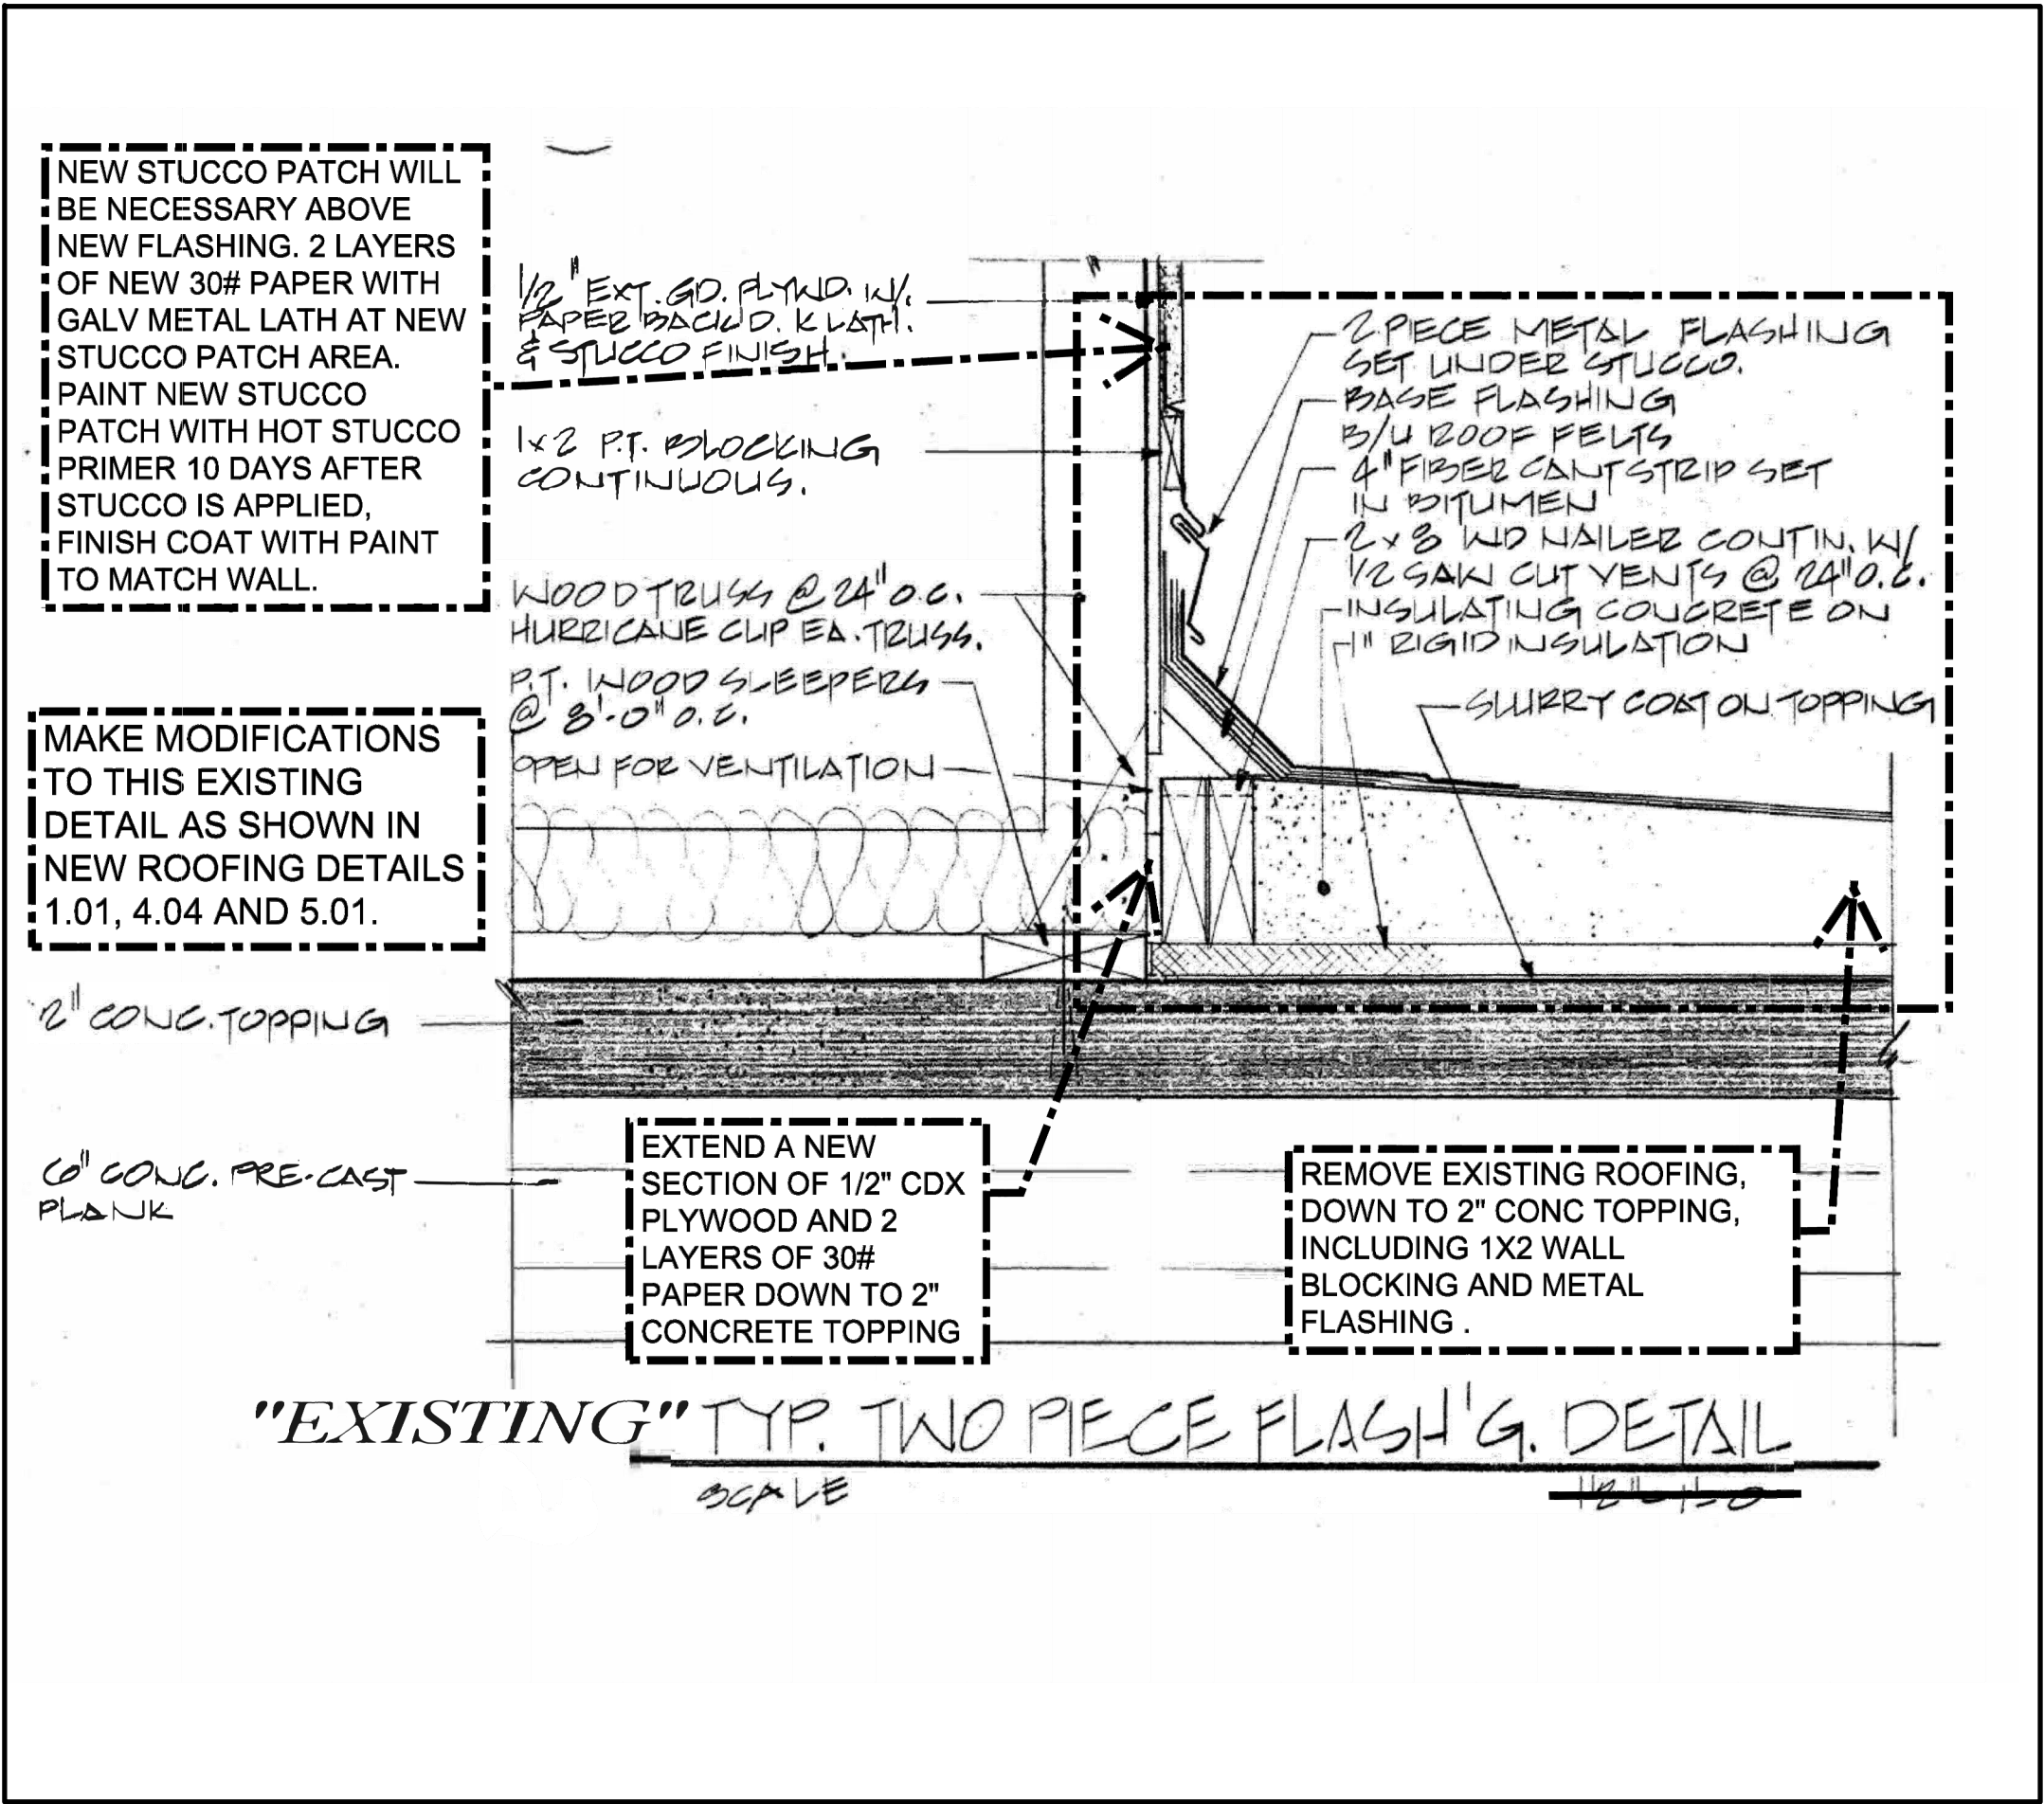 NEW STUCCO PATCH WILL
BE NECESSARY ABOVE
NEW FLASHING. 2 LAYERS
OF NEW 30# PAPER WITH
GALV METAL LATH AT NEW
STUCCO PATCH AREA.
PAINT NEW STUCCO
PATCH WITH HOT STUCCO
PRIMER 10 DAYS AFTER
STUCCO IS APPLIED,
FINISH COAT WITH PAINT
TO MATCH WALL.
MAKE MODIFICATIONS
TO THIS EXISTING
DETAIL AS SHOWN IN
NEW ROOFING DETAILS
1.01, 4.04 AND 5.01.
2" CONC. TOPPING
6" CONC. PRE-CAST
PLANK
1/2" EXT. GD. PLYWD. W/.
PAPER BACK'D. K LATH.
& STUCCO FINISH.
1x2 P.T. BLOCKING
CONTINUOUS.
WOOD TRUSS @ 24" O.C.
HURRICANE CLIP EA. TRUSS.
P.T. WOOD SLEEPERS
@ 8'-0" O.C.
OPEN FOR VENTILATION
2 PIECE METAL FLASHING
SET UNDER STUCCO.
BASE FLASHING
B/U ROOF FELTS
4" FIBER CANT STRIP SET
IN BITUMEN
2x8 WD NAILER CONTIN. W/
1/2 SAW CUT VENTS @ 24" O.C.
INSULATING CONCRETE ON
1" RIGID INSULATION
SLURRY COAT ON TOPPING
EXTEND A NEW
SECTION OF 1/2" CDX
PLYWOOD AND 2
LAYERS OF 30#
PAPER DOWN TO 2"
CONCRETE TOPPING
REMOVE EXISTING ROOFING,
DOWN TO 2" CONC TOPPING,
INCLUDING 1X2 WALL
BLOCKING AND METAL
FLASHING .
"EXISTING" TYP. TWO PIECE FLASH'G. DETAIL
SCALE